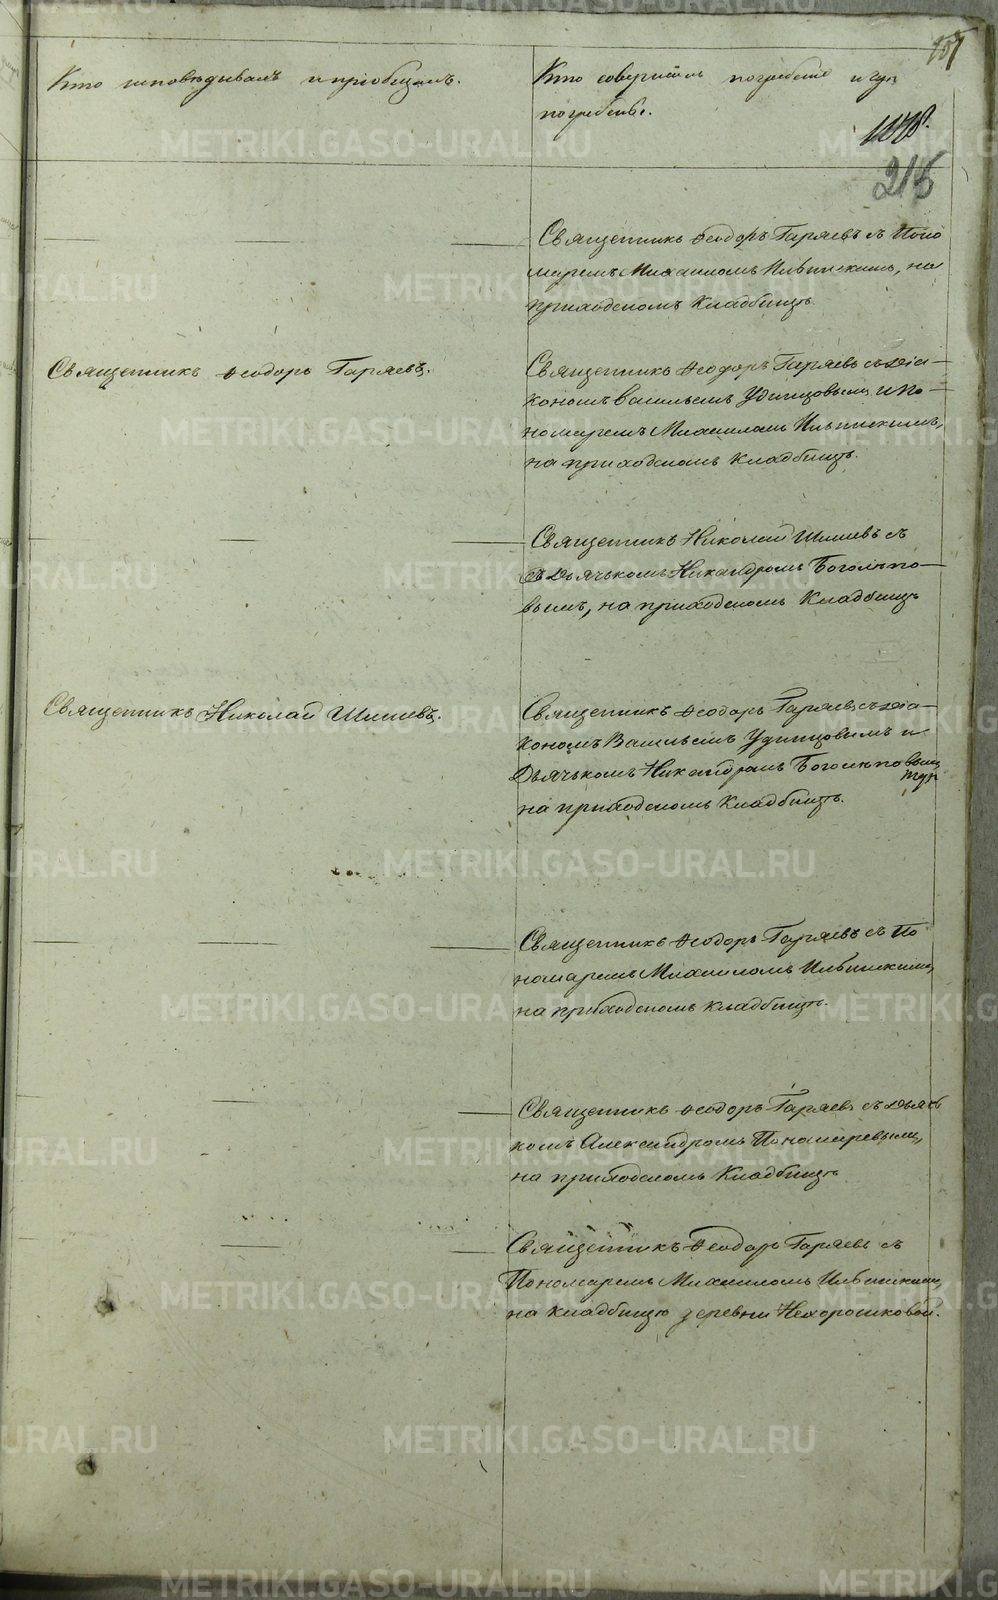 Кто исповѣдывалъ и пріобщалъ.
Кто совершалъ погребеніе и гдѣ
погребены.
215
Священникъ Ѳеодоръ Гаряевъ съ Поно
маремъ Михаиломъ Ильинскимъ, на
приходскомъ Кладбищѣ.
Священникъ Ѳеодоръ Гаряевъ.
Священникъ Ѳеодоръ Гаряевъ съ Діа-
кономъ Васильемъ Удинцовымъ и По-
номаремъ Михаиломъ Ильинскимъ,
на приходскомъ Кладбищѣ.
Священникъ Николай Шишевъ съ
съ Дьячькомъ Никандромъ Боголѣпо-
вымъ, на приходскомъ Кладбищѣ
Священникъ Николай Шишевъ.
Священникъ Ѳеодоръ Гаряевъ съ Діа-
кономъ Васильемъ Удинцовымъ и
Дьячькомъ Никандромъ Боголѣповымъ
на приходскомъ Кладбищѣ.
Священникъ Ѳеодоръ Гаряевъ съ По
номаремъ Михаиломъ Ильинскимъ,
на приходскомъ Кладбищѣ.
Священникъ Ѳеодоръ Гаряевъ съ Дьячь
комъ Александромъ Пономаревымъ,
на приходскомъ Кладбищѣ
Священникъ Ѳеодоръ Гаряевъ съ
Пономаремъ Михаиломъ Ильинскимъ,
на кладбищѣ деревни Нехорошковой.
METRIKI.GASO-URAL.RU